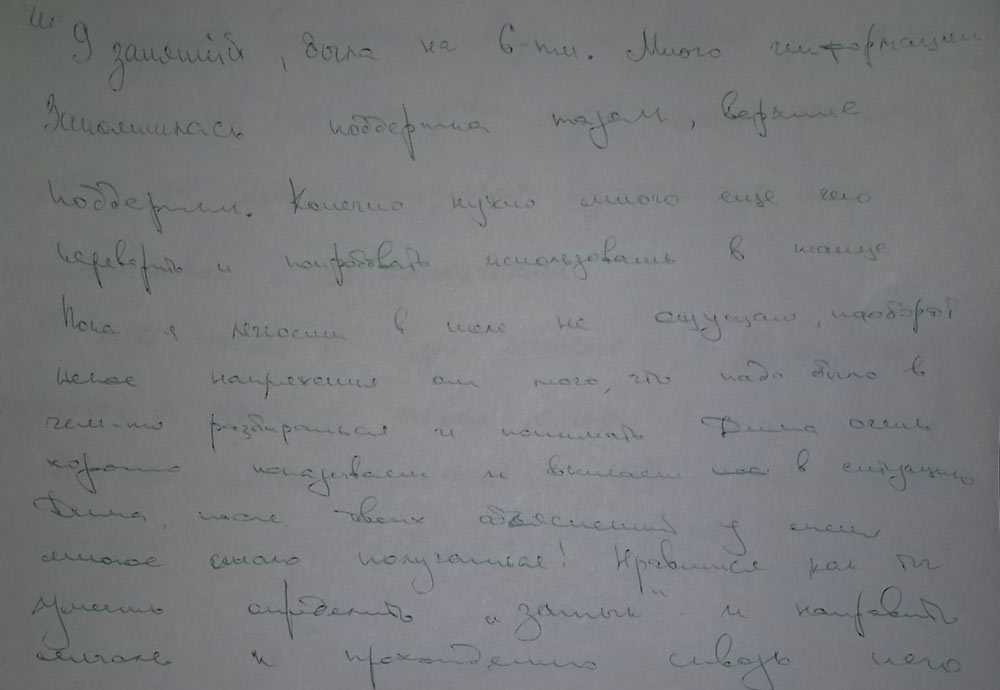 9 занятий, была на 6-ти. Много информации
Запомнилась поддержка тазом, верхние
поддержки. Конечно нужно много еще чего
переварить и попробовать использовать в танце
Пока я легкости в теле не ощущаю, наоборот
некое напряжения от того, что надо было в
чем-то разбираться и понимать Дима очень
хорошо показывает и вникает в ситуацию
Дима, после твоих объяснений у меня
многое стало получаться! Нравится как ты
умеешь определить "затык" и направить
к прохождению сквозь него